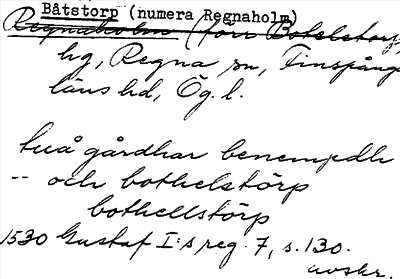 Båtstorp (numera Regnaholm)
Regnaholm (förr Botelstorp,
hg, Regna sn, Finspånga
läns hd, Ög. l.
tuå gårdhar benempdh
-- och bothelstörp
bothellstörp
1530 Gustaf I:s reg. 7, s. 130.
avskr.